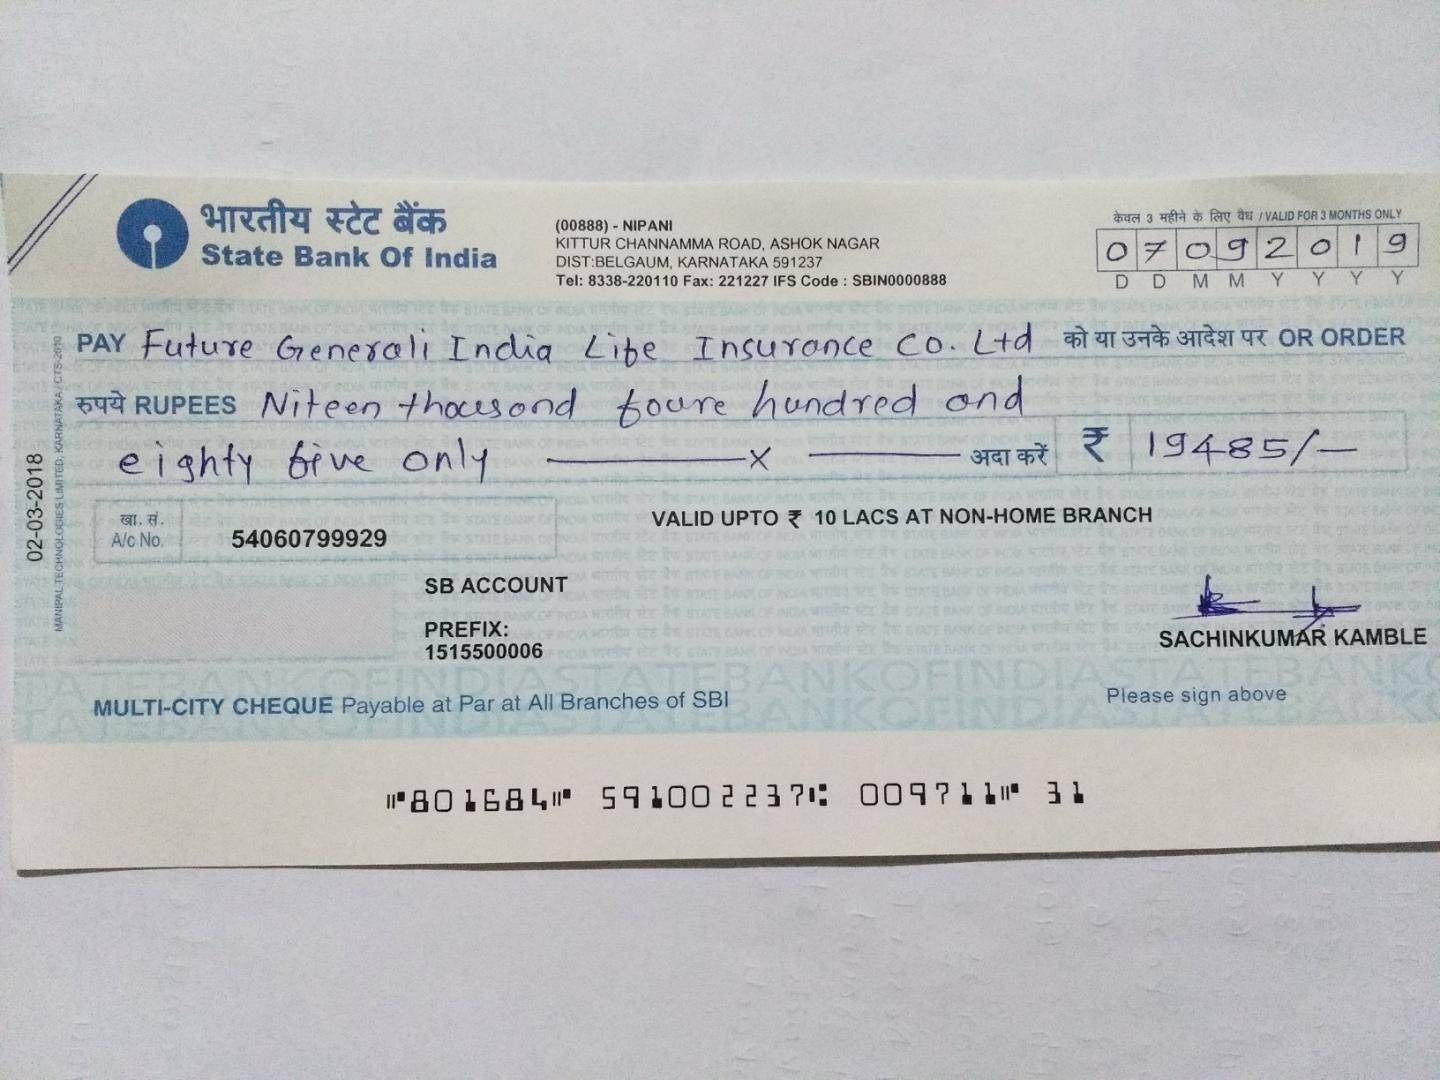 भारतीय स्टेट बैंक
State Bank Of India
(00888) - NIPANI
KITTUR CHANNAMMA ROAD, ASHOK NAGAR
DIST:BELGAUM, KARNATAKA 591237
Tel: 8338-220110 Fax: 221227 IFS Code : SBIN0000888
केवल 3 महीने के लिए वैध / VALID FOR 3 MONTHS ONLY
0 7 0 9 2 0 1 9
D D M M Y Y Y Y
PAY Future Generali India Life Insurance Co. Ltd को या उनके आदेश पर OR ORDER
रुपये RUPEES Niteen thousand foure hundred and
eighty five only ———x——— अदा करें ₹ 19485/—
खा. सं.
A/c No. 54060799929
VALID UPTO ₹ 10 LACS AT NON-HOME BRANCH
SB ACCOUNT
PREFIX:
1515500006
SACHINKUMAR KAMBLE
Please sign above
MULTI-CITY CHEQUE Payable at Par at All Branches of SBI
STATEBANKOFINDIASTATEBANKOFINDIASTATEBANK
⑈801684⑈ 591002237⑆ 009711⑈ 31
02-03-2018
MANIPAL TECHNOLOGIES LIMITED, KARNATAKA / CTS-2010